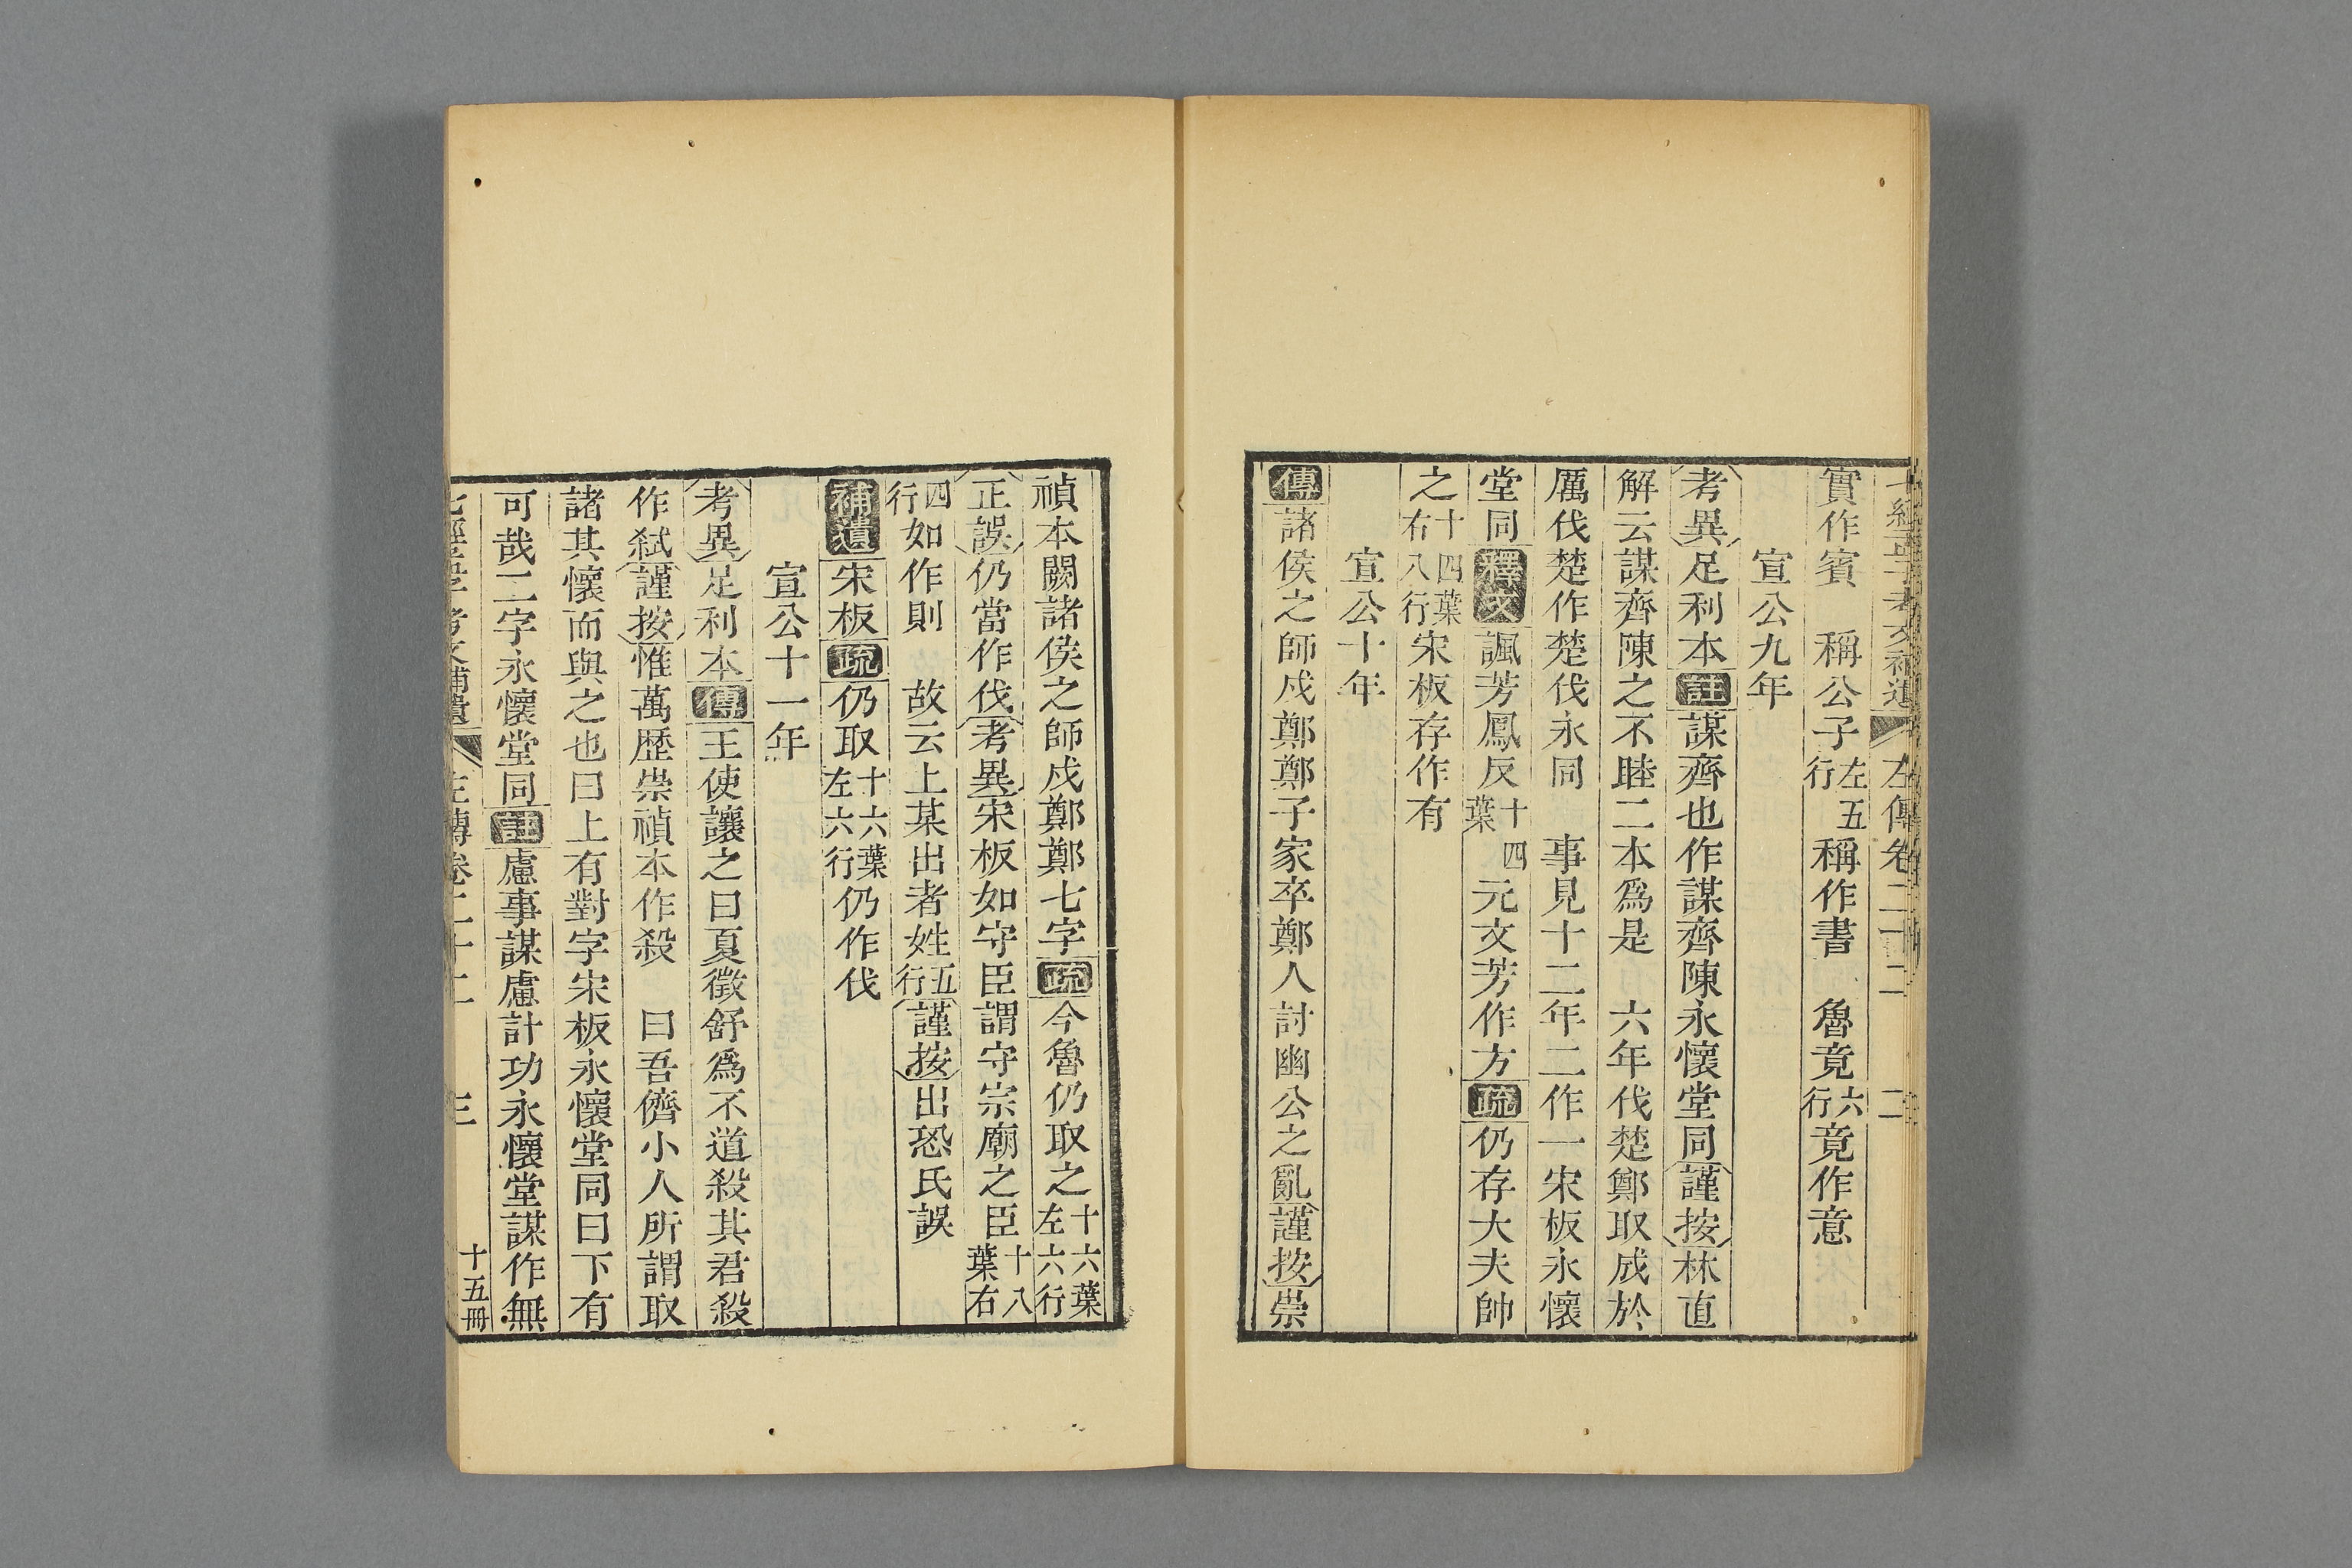 七經孟子考文補遺 左傳卷二十二 二
實作賓 稱公子左五行稱作書 魯竟六行竟作意
宣公九年
考異足利本註謀齊也作謀齊陳永懷堂同謹按林直
解云謀齊陳之不睦二本爲是 六年伐楚鄭取成於
厲伐楚作楚伐永同 事見十二年二作一宋板永懷
堂同釋文諷芳鳳反十四葉元文芳作方疏仍存大夫帥
之十四葉右八行宋板存作有
宣公十年
傳諸侯之師戍鄭鄭子家卒鄭人討幽公之亂謹按崇
禎本闕諸侯之師戍鄭鄭七字疏今魯仍取之十六葉左六行
正誤仍當作伐考異宋板如守臣謂守宗廟之臣十八葉右
四行如作則 故云上某出者姓五行謹按出恐氏誤
補遺宋板疏仍取十六葉左六行仍作伐
宣公十一年
考異足利本傳王使讓之曰夏徵舒爲不道殺其君殺
作弑謹按惟萬歷崇禎本作殺 曰吾儕小人所謂取
諸其懷而與之也曰上有對字宋板永懷堂同曰下有
可哉二字永懷堂同註慮事謀慮計功永懷堂謀作無
七經孟子考文補遺 左傳卷二十二 三 十五冊